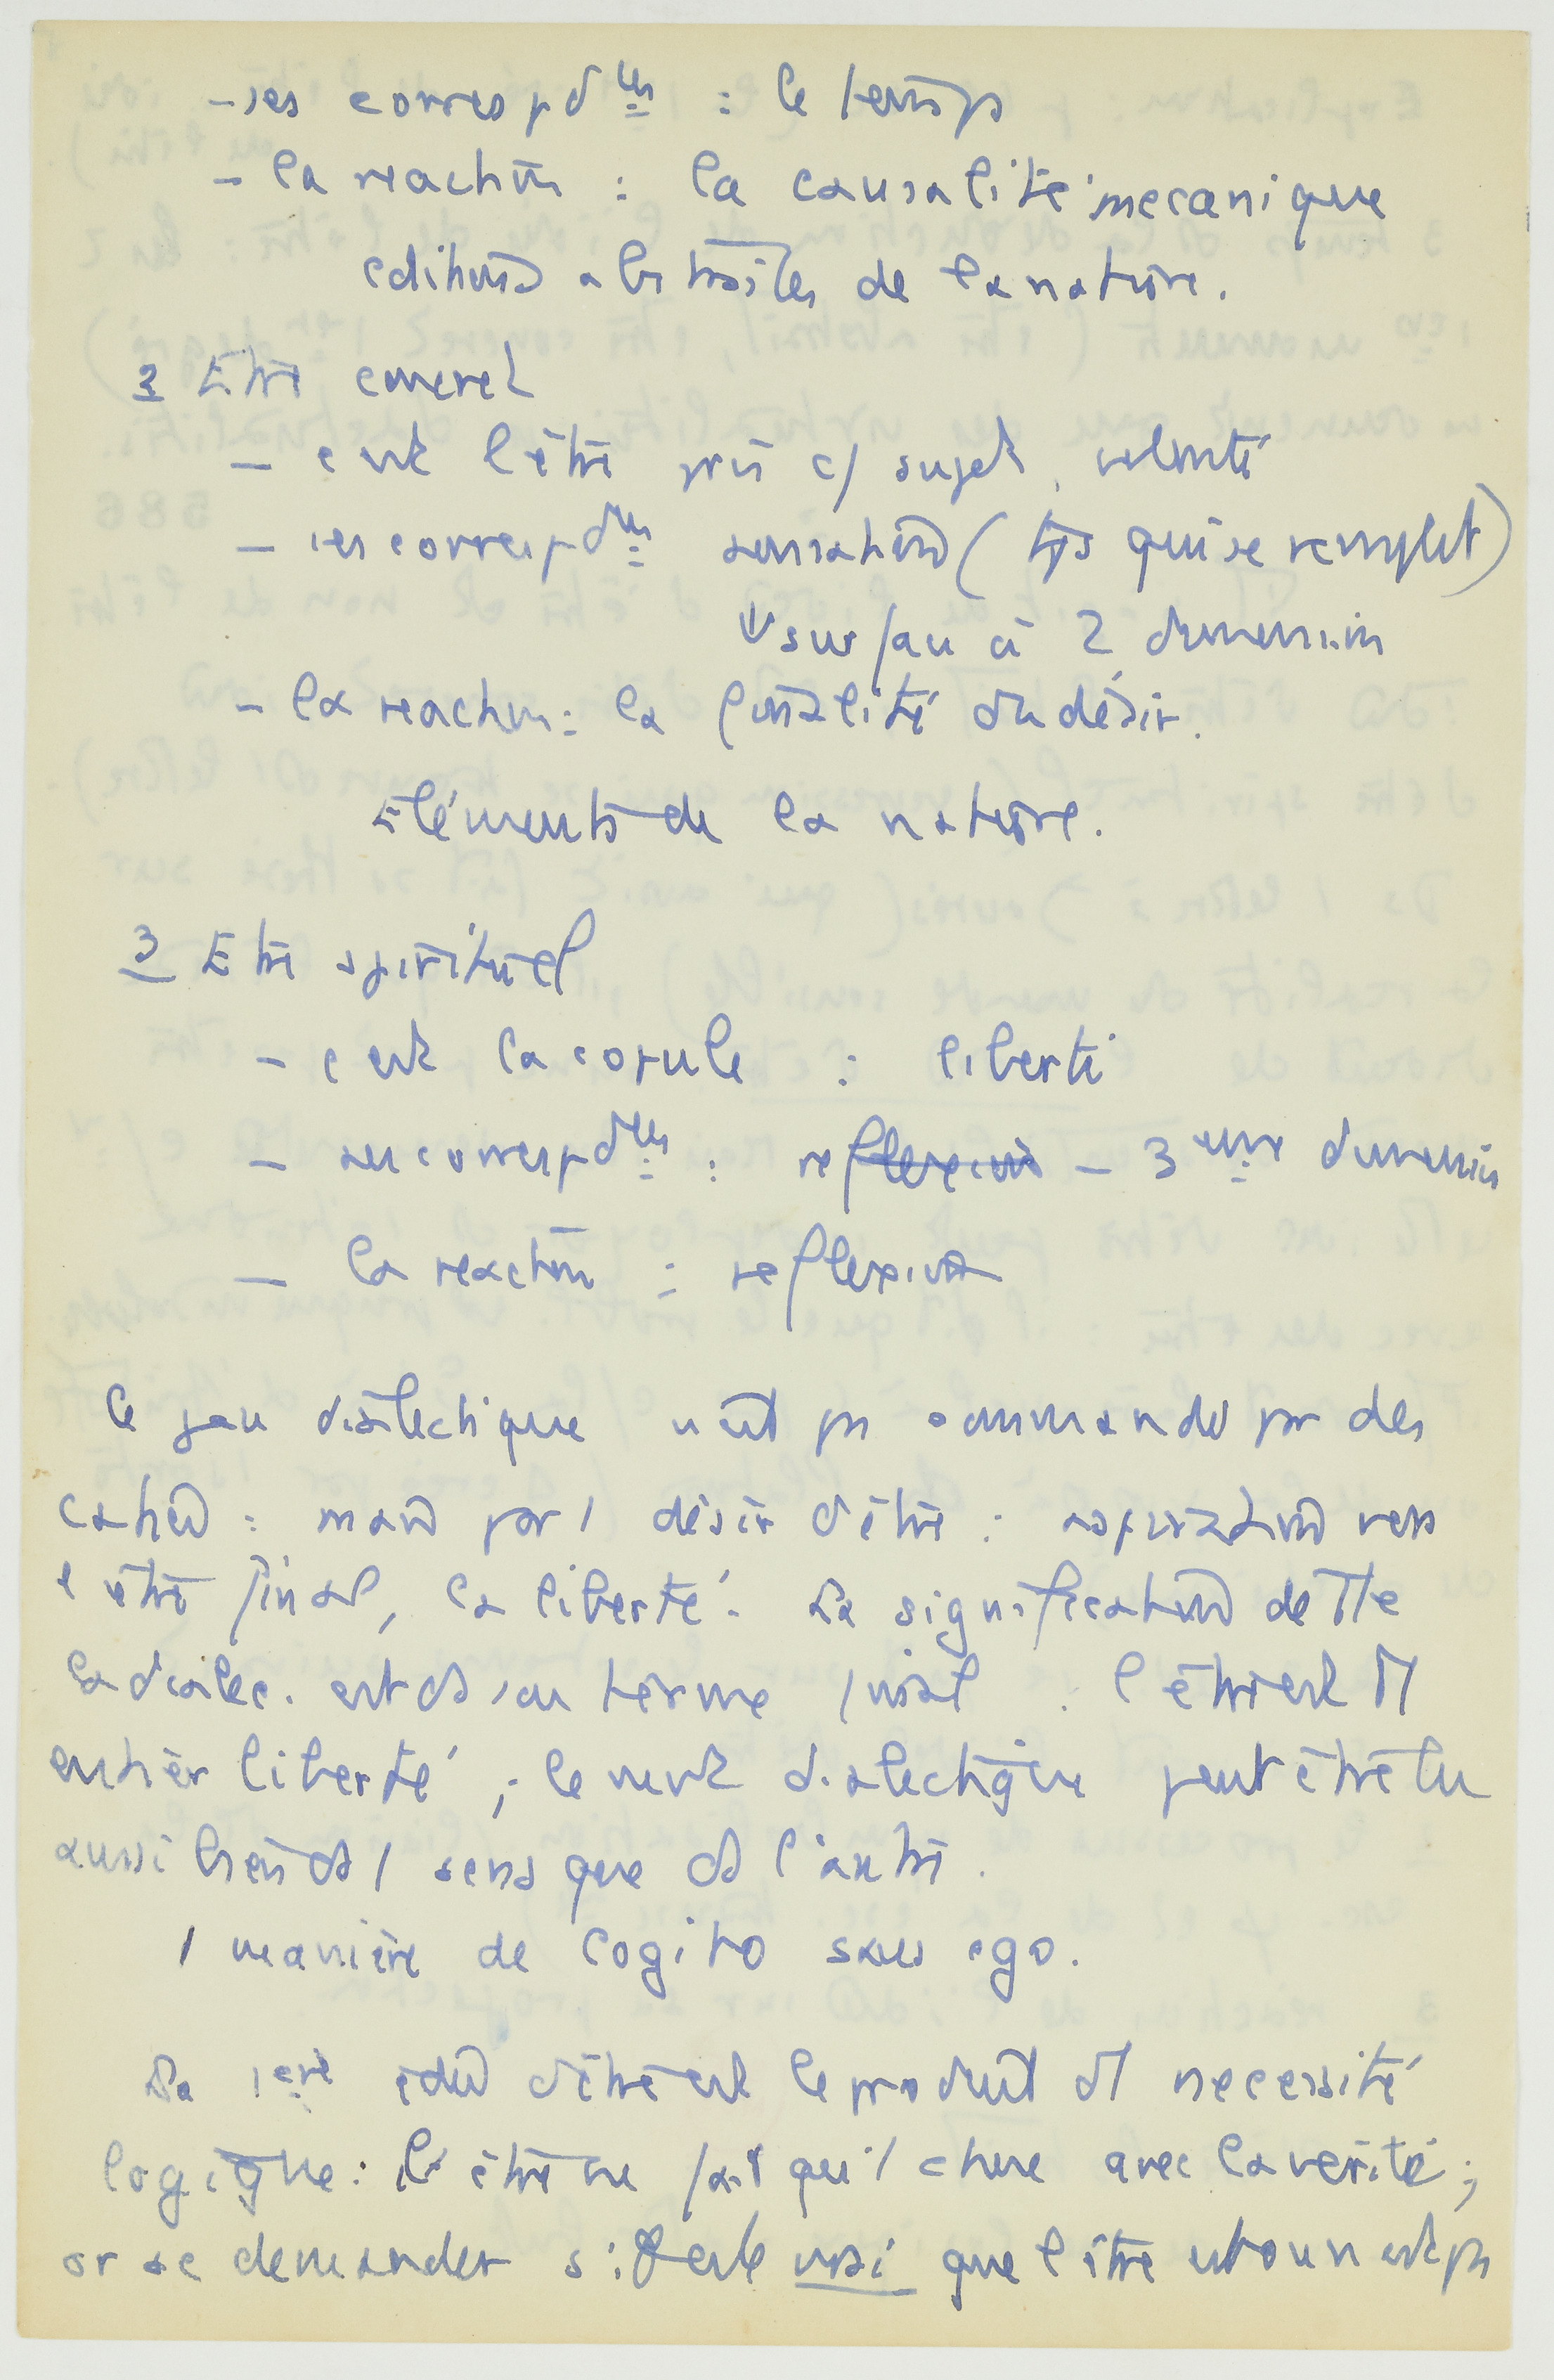 - ses correspdces : le temps
- la reaction : la causalité mecanique
cditions abstraites de la nature.
2 Etre concret
- c'est l'être pris c/ sujet, volonté
- ses correspdces sensation (tps qui se remplit)
surface à 2 dimension
- la reaction : la finalité du désir.
Eléments de la nature.
3 Etre spirituel
- c'est la copule : liberté
- ses correspdces : reflexion - 3eme dimension
- la reaction : reflexion
le jeu dialectique n'est ps commandé par des
mais par 1 désir d'être : aspiration vers
l'être final, la liberté. La signification de tte
la dialec. est ds son terme final : l'être est tt
entier liberté ; le mvt dialectique peut être lu
aussi bien ds 1 sens que ds l'autre.
1 manière de cogito sans ego.
La 1ere d'être est le produit d'1 necessité
logique : l'être ne fait qu'1 chose avec la verité ;
or se demander si est vrai que l'être est ou n'est ps